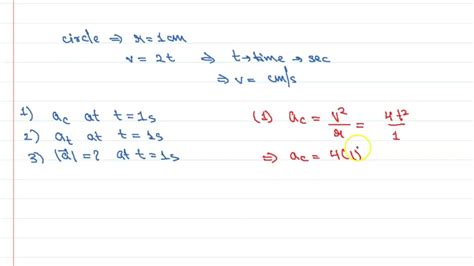 circle ⇒ r = 1cm
v = 2t ⇒ t → time → sec
⇒ v = cm/s
1) ac at t = 1s
2) at at t = 1s
3) |a⃗| = ? at t = 1s
(1) ac = v²/r = 4t²/1
⇒ ac = 4(1)